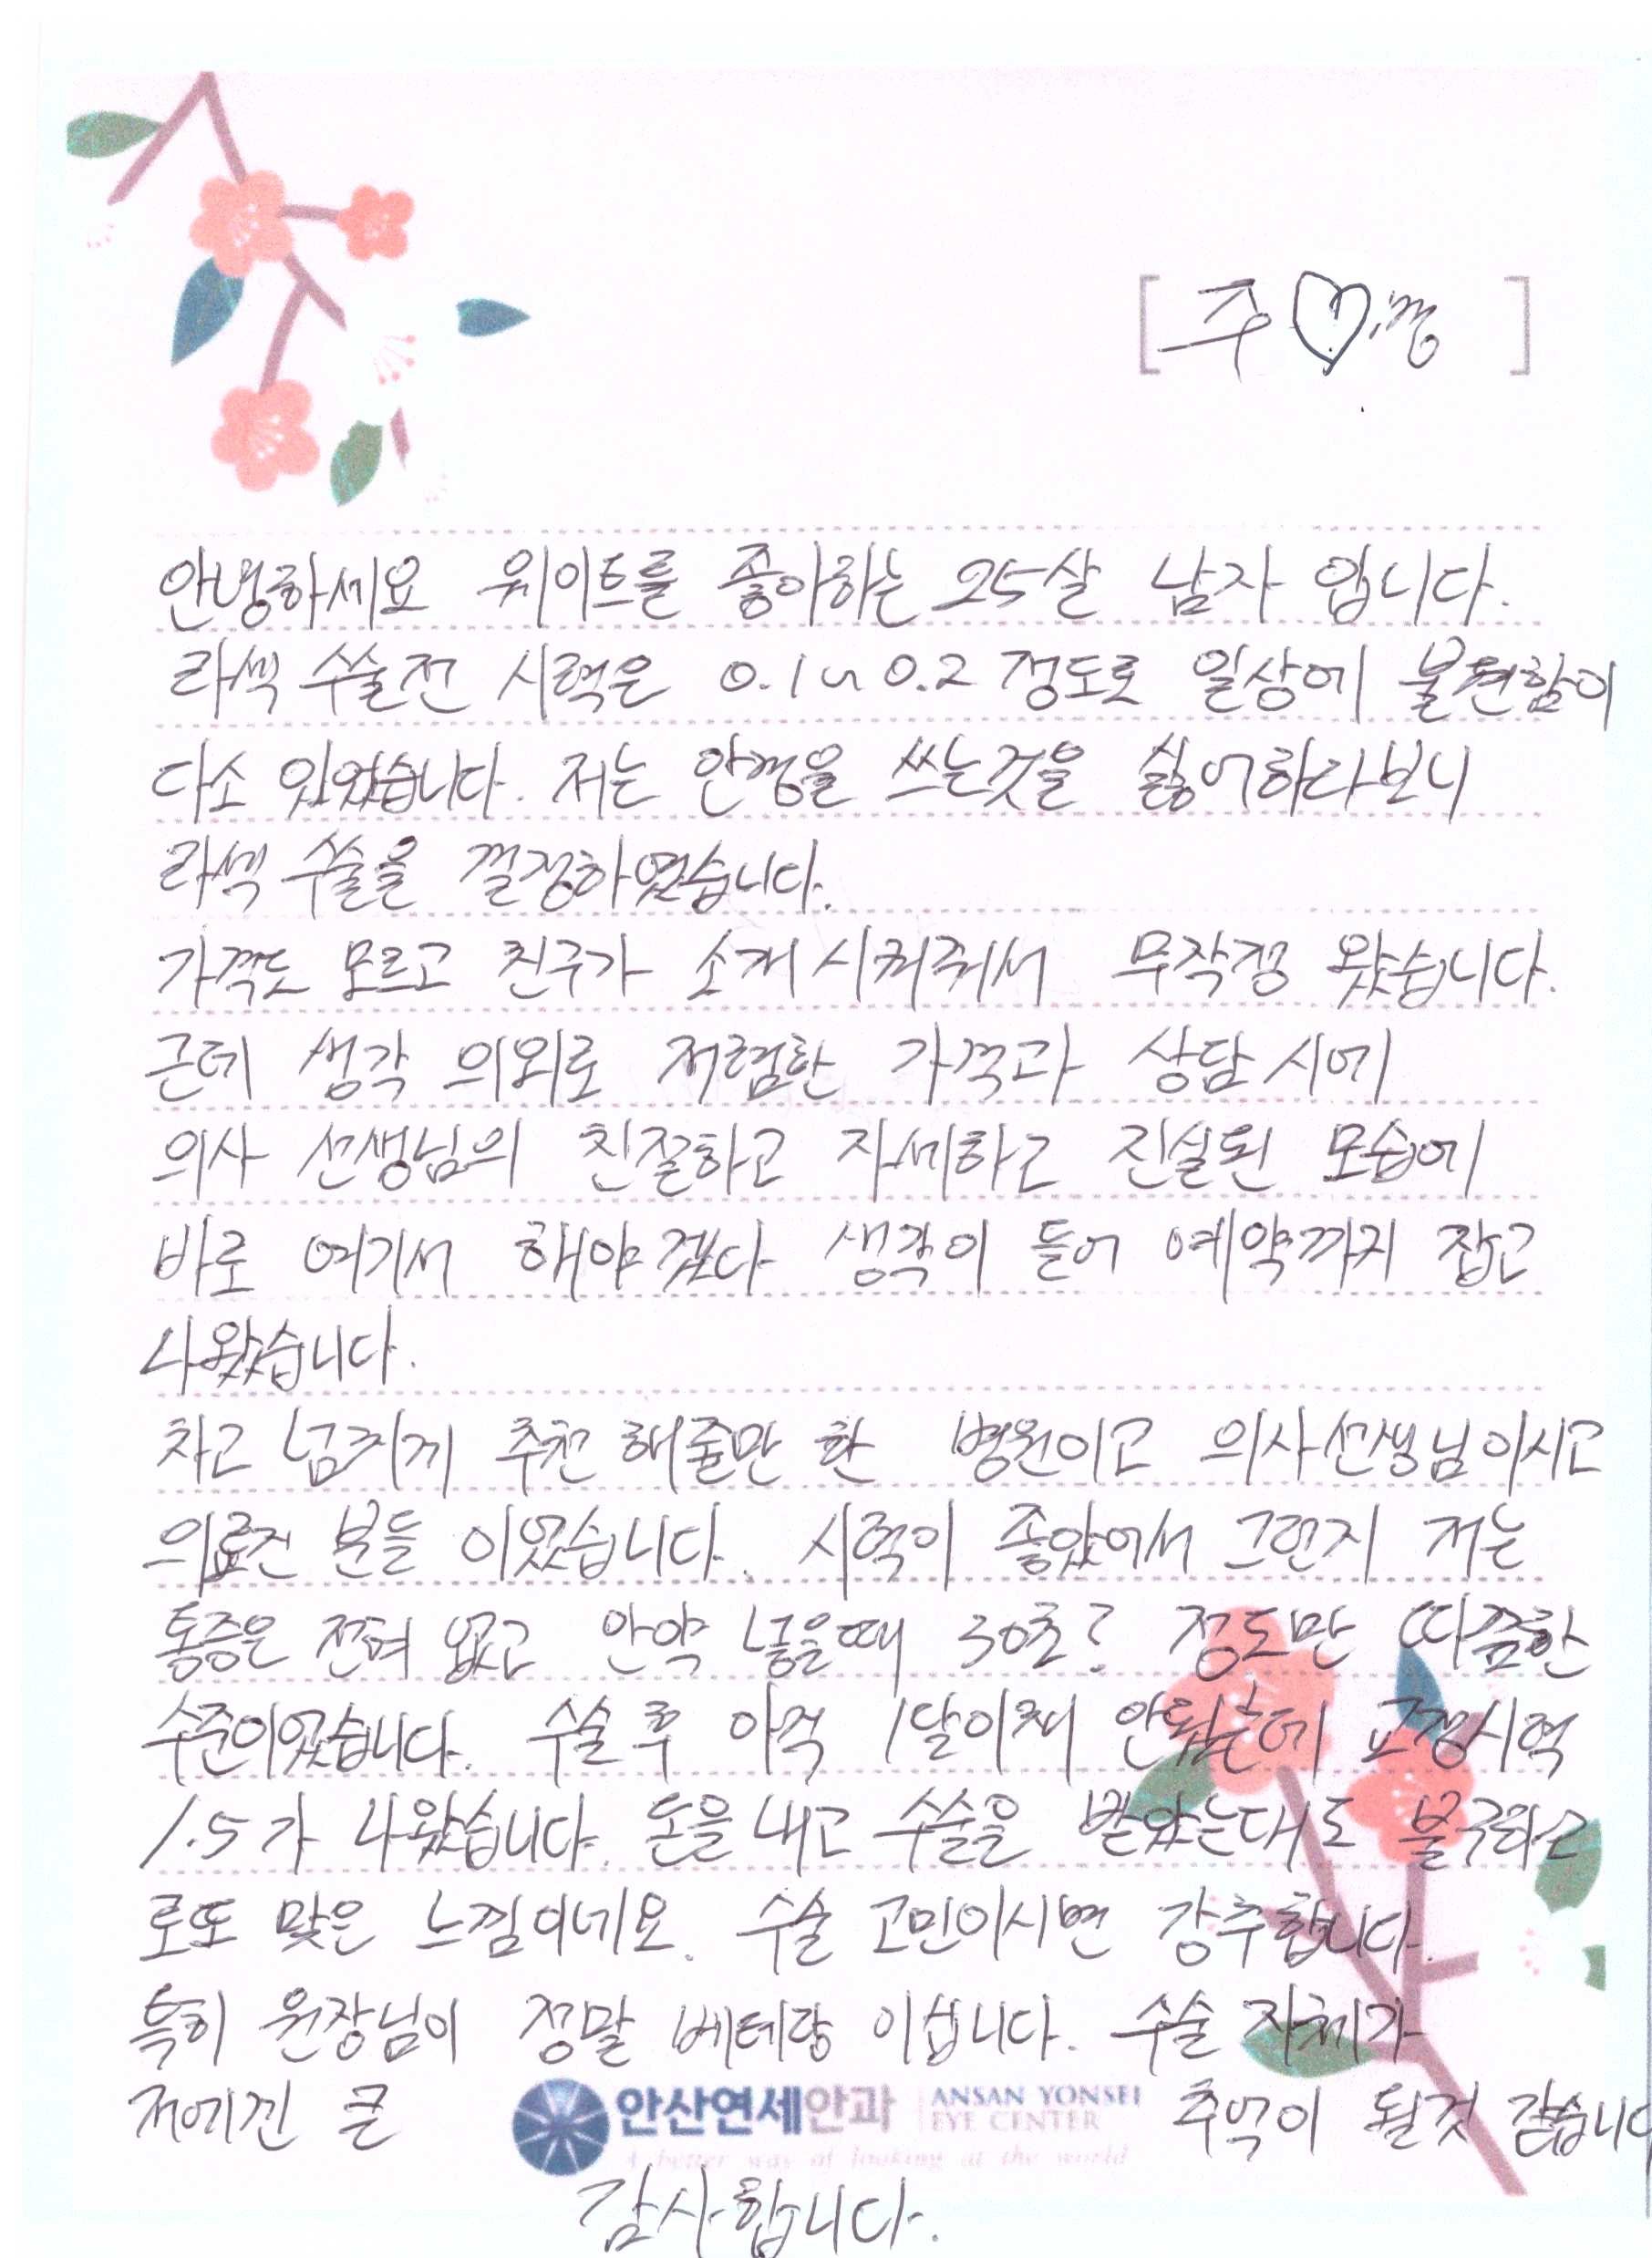 [주♡경]
안녕하세요 웨이트를 좋아하는 25살 남자 입니다.
라섹 수술전 시력은 0.1~0.2 정도로 일상에 불편함이
다소 있었습니다. 저는 안경을 쓰는것을 싫어하다보니
라섹 수술을 결정하였습니다.
가격도 모르고 친구가 소개시켜줘서 무작정 왔습니다.
근데 생각 의외로 저렴한 가격과 상담 시에
의사 선생님의 친절하고 자세하고 진실된 모습에
바로 여기서 해야겠다 생각이 들어 예약까지 잡고
나왔습니다.
차고 넘치게 추천 해줄만 한 병원이고 의사선생님이시고
의료진 분들 이었습니다. 시력이 좋았어서 그런지 저는
통증은 전혀 없고 안약 넣을때 30초? 정도만 따끔한
수준이었습니다. 수술 후 아직 1달이채 안됐는데 교정시력
1.5가 나왔습니다. 돈을 내고 수술을 받았는대도 불구하고
로또 맞은 느낌이네요. 수술 고민이시면 강추합니다.
특히 원장님이 정말 베테랑 이십니다. 수술 자체가
저에겐 큰 추억이 될것 같습니다
안산연세안과 ANSAN YONSEI
EYE CENTER
A better way of looking at the world
감사합니다.